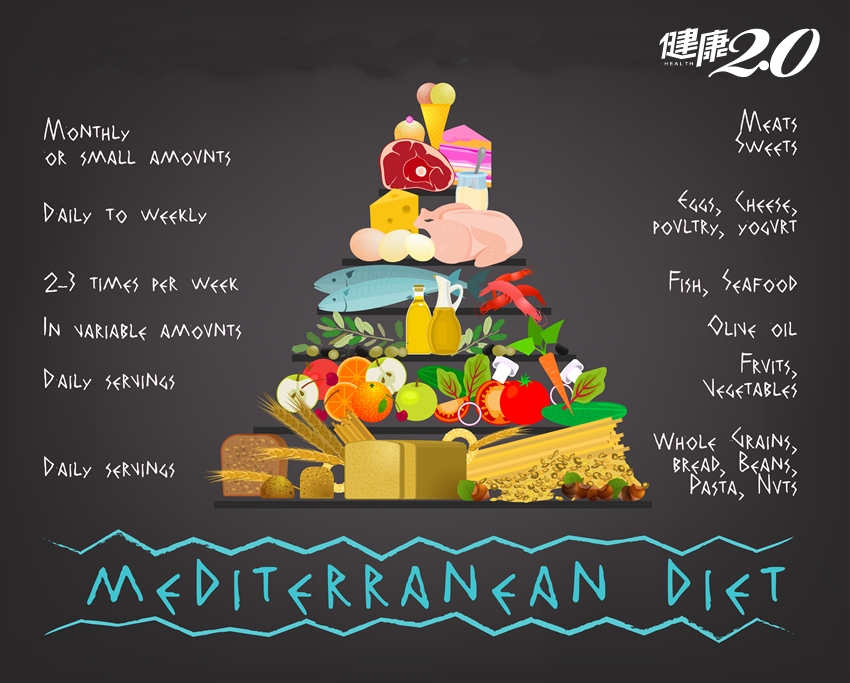 健康2.0
HEALTH
Monthly
or small amounts
Meats
Sweets
Daily to weekly
Eggs, Cheese,
poultry, yogurt
2-3 times per week
Fish, Seafood
In variable amounts
Olive oil
Daily servings
Fruits,
Vegetables
Daily servings
Whole Grains,
bread, Beans,
Pasta, Nuts
Mediterranean Diet